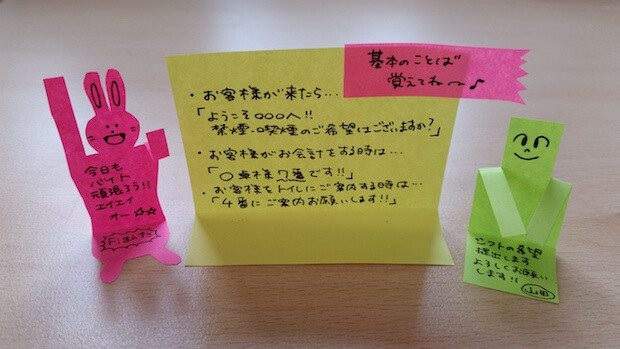 基本のことば
覚えてね〜♪
・お客様が来たら…
「ようこそ○○○へ!!
禁煙・喫煙のご希望はございますか?」
・お客様がお会計をする時は…
「○卓様7番です!!」
・お客様をトイレにご案内する時は…
「4番にご案内お願いします!!」
今日も
バイト
頑張ろう!!
エイエイ
オー☆☆
シフトの希望
提出します
よろしくお願い
します!!
山田